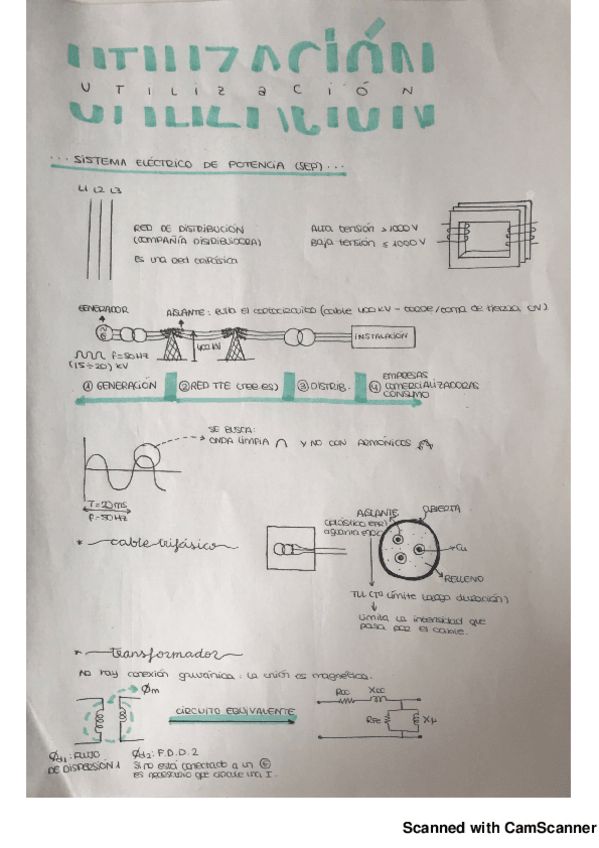 UTILIZACIÓN
UTILIZACIÓN
UTILIZACIÓN
... SISTEMA ELÉCTRICO DE POTENCIA (SEP) ...
L1 L2 L3
RED DE DISTRIBUCIÓN
(COMPAÑÍA DISTRIBUIDORA)
es una red trifásica
Alta tensión > 1000 V
Baja tensión ≤ 1000 V
GENERADOR
AISLANTE: evita el cortocircuito (cable 400 kV - torre/toma de tierra 0V).
400 kV
INSTALACIÓN
f=50Hz
(15÷20) kV
① GENERACIÓN
② RED TTE (ree.es)
③ DISTRIB.
④ EMPRESAS
COMERCIALIZADORAS
CONSUMO
SE BUSCA:
ONDA LIMPIA Y NO CON ARMÓNICOS
T=20ms
f=50Hz
* cable trifásico
AISLANTE
(plástico EPR)
CUBIERTA
Cu
RELLENO
TLL (Tª Límite Largo duración)
Limita la intensidad que
pasa por el cable.
* transformador
No hay conexión galvánica: la unión es magnética.
Øm
CIRCUITO EQUIVALENTE
Rcc Xcc
RFe Xμ
Ød1: FLUJO
DE DISPERSIÓN 1
Ød2: F.D.D. 2
Si no está conectado a un
es necesario que circule una I.